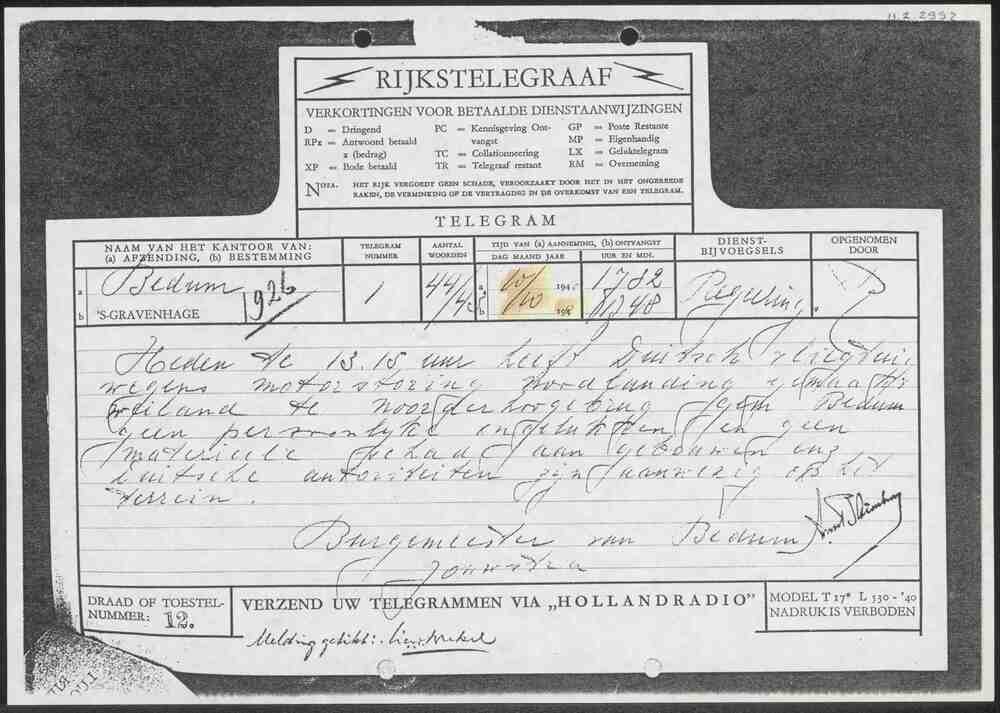 11.2.2992
RIJKSTELEGRAAF
VERKORTINGEN VOOR BETAALDE DIENSTAANWIJZINGEN
D = Dringend
RPx = Antwoord betaald
x (bedrag)
XP = Bode betaald
PC = Kennisgeving Ont-
vangst
TC = Collationneering
TR = Telegraaf restant
GP = Poste Restante
MP = Eigenhandig
LX = Gelukstelegram
RM = Overneming
NOTA. HET RIJK VERGOEDT GEEN SCHADE, VEROORZAAKT DOOR HET IN HET ONGEREEDE
RAKEN, DE VERMINKING OF DE VERTRAGING IN DE OVERKOMST VAN EEN TELEGRAM.
TELEGRAM
NAAM VAN HET KANTOOR VAN:
(a) AFZENDING, (b) BESTEMMING
TELEGRAM
NUMMER
AANTAL
WOORDEN
TIJD VAN (a) AANNEMING, (b) ONTVANGST
DAG MAAND JAAR
UUR EN MIN.
DIENST-
BIJVOEGSELS
OPGENOMEN
DOOR
a Bedum
b 'S-GRAVENHAGE
1926
1
44/42
a 10/10 194
b 194
1732
1748
Regeering
Heden te 13.15 uur heeft Duitsch vliegtuig
wegens motorstoring noodlanding gemaakt
weiland te Noorderhoogebrug gem Bedum
geen persoonlyke ongelukken en geen
materieele schade aan gebouwen enz
Duitsche autoriteiten zyn aanwezig op het
terrein.
Burgemeester van Bedum
DRAAD OF TOESTEL-
NUMMER: 12.
VERZEND UW TELEGRAMMEN VIA „HOLLANDRADIO”
MODEL T 17* L 530 - '40
NADRUK IS VERBODEN
Melding getikt: